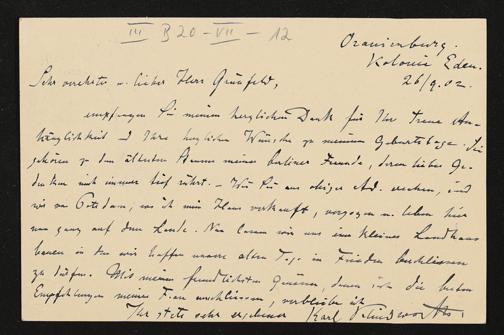 III B 20 - VII - 12
Oranienburg.
Kolonie Eden.
26/9. 02.
Sehr verehrter u. lieber Herr Grünfeld,
empfangen Sie meinen herzlichen Dank für Ihre treue An-
hänglichkeit & Ihre herzlichen Wünsche zu meinem Geburtstage. Sie
gehören zu dem ältesten Stamm meiner berliner Freunde, deren liebes Ge-
denken mich immer tief rührt. - Wie Sie aus obiger Ad. ersehen, sind
wir von Potsdam, wo ich mein Haus verkauft, verzogen u. leben hier
nun ganz auf dem Lande. Nun lassen wir uns ein kleines Landhaus
bauen in dem wir hoffen unsre alten Tage in Frieden beschliessen
zu dürfen. Mit meinen freundlichsten Grüssen, denen sich die besten
Empfehlungen meiner Frau anschliessen, verbleibe ich
Ihr stets sehr ergebener Karl Klindworth.